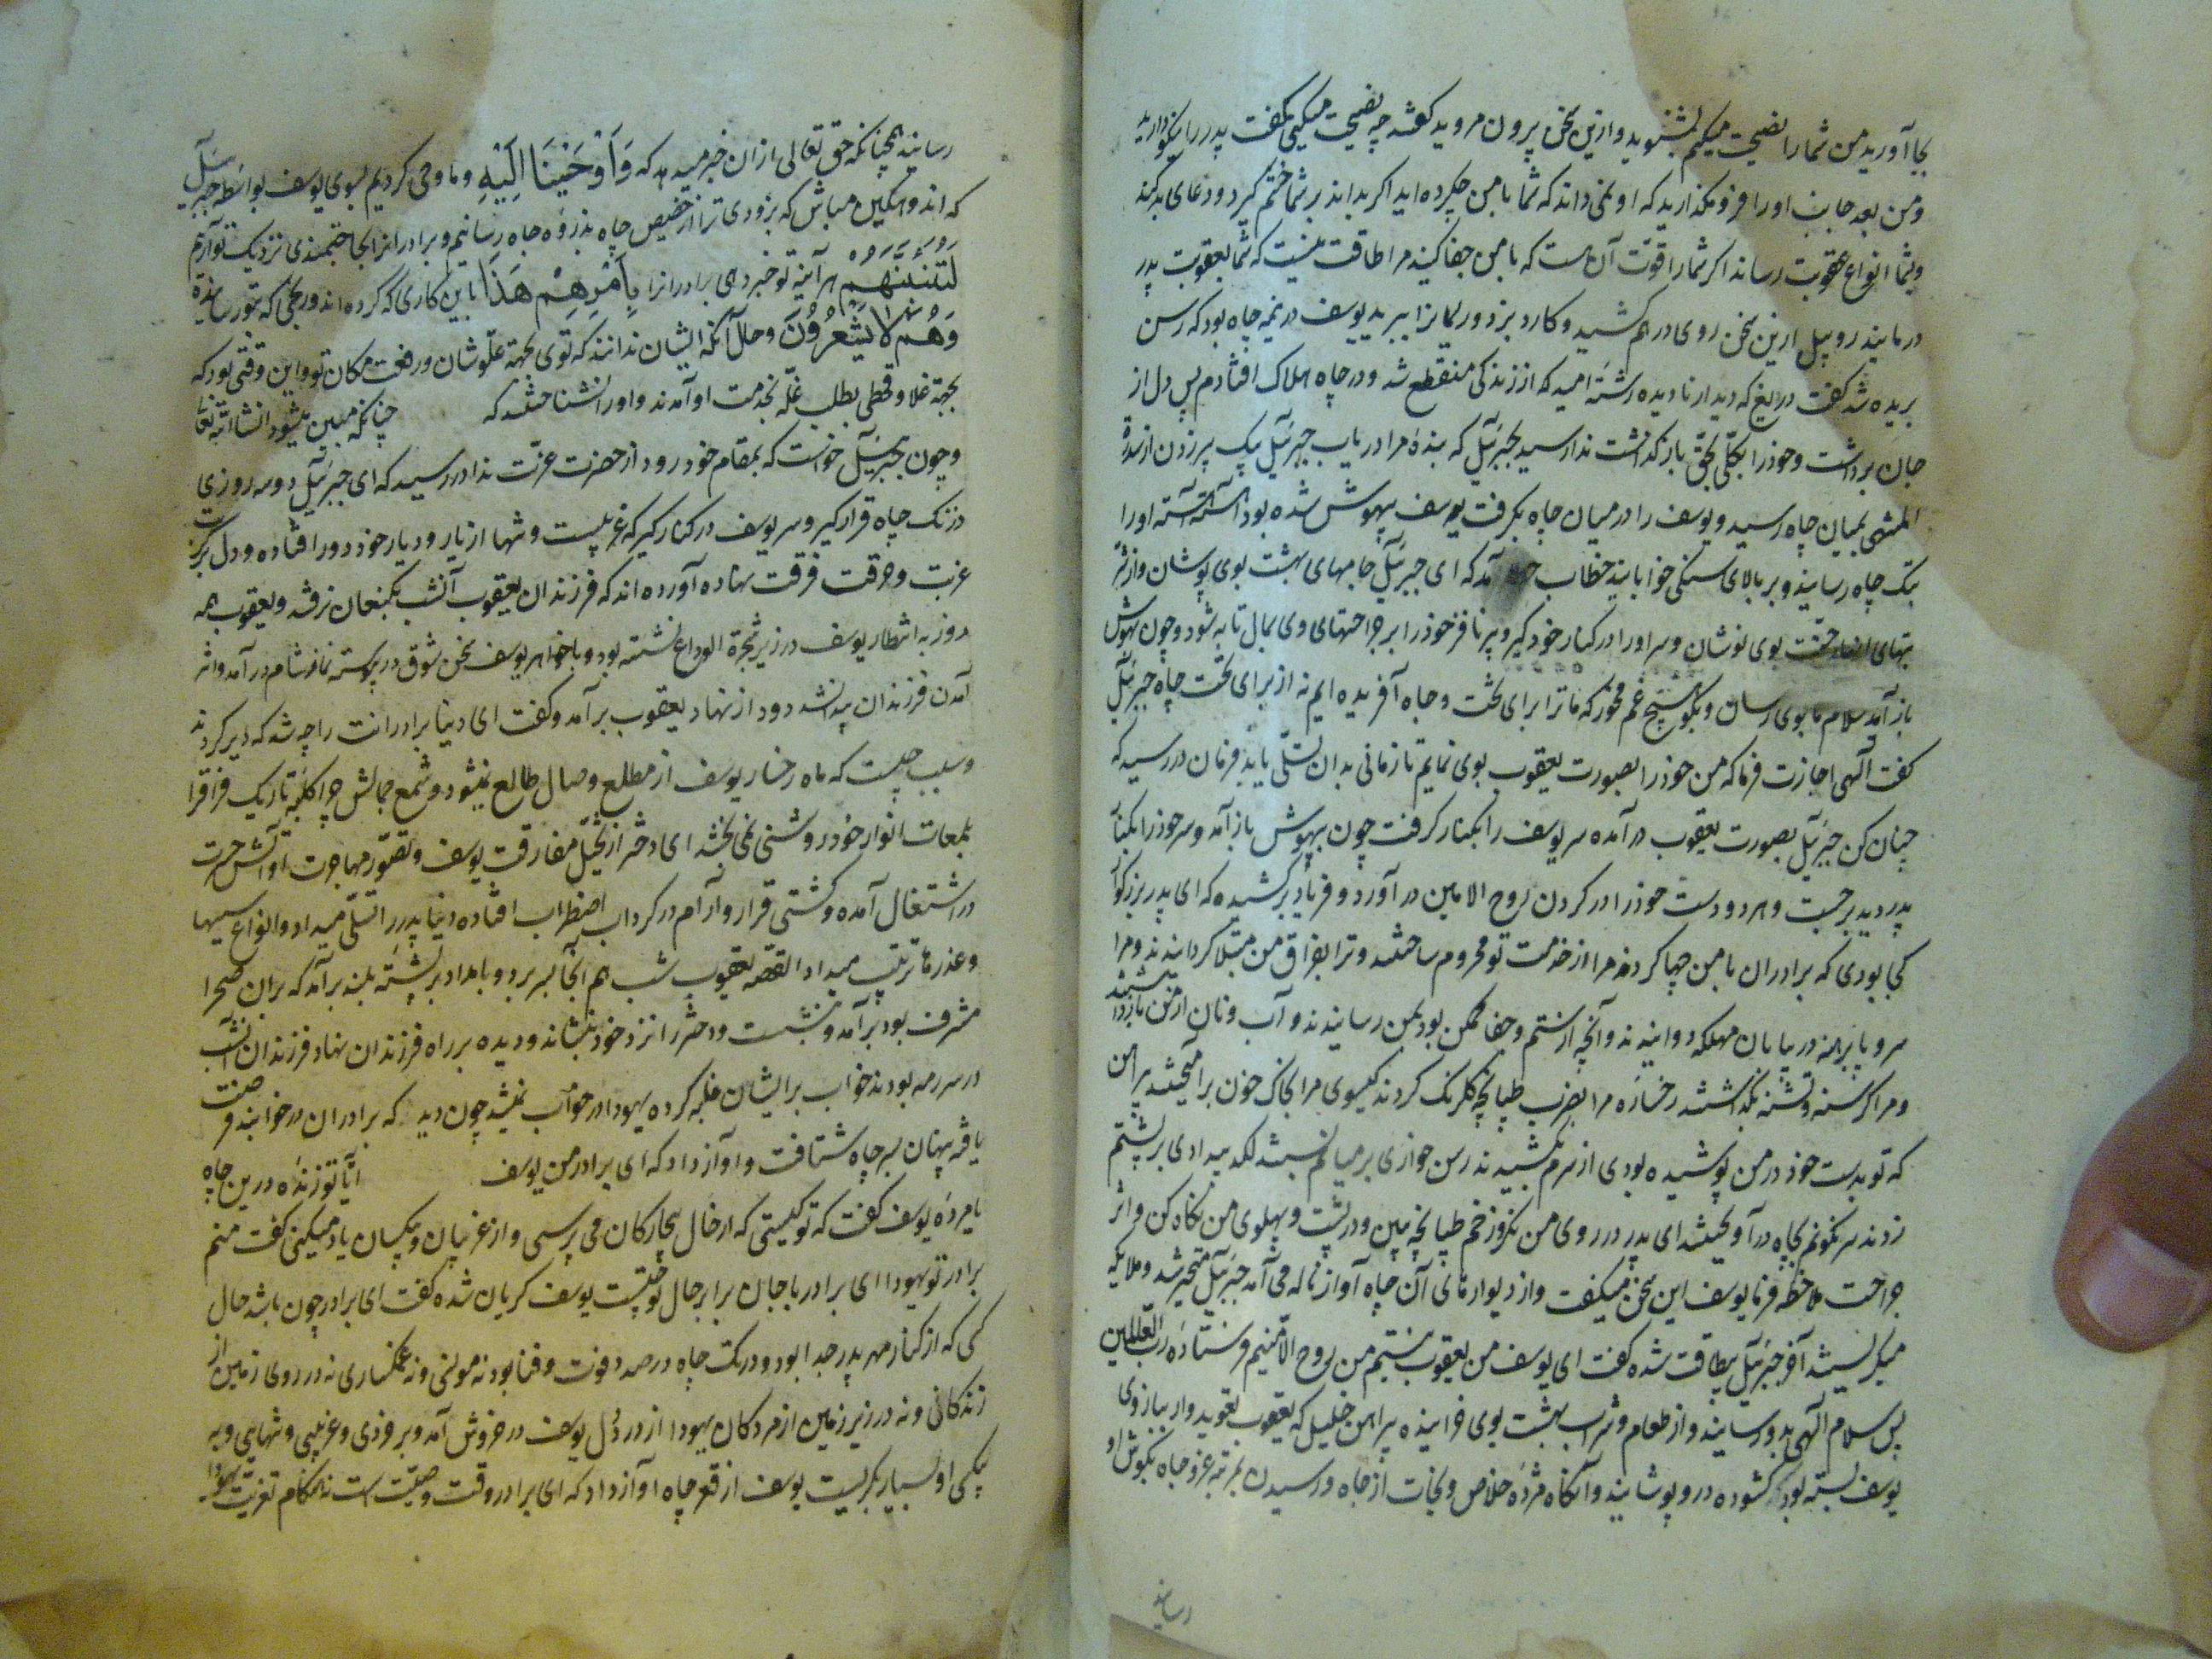 بجا آورید من شما را نصیحت میکنم بشنوید و ازین سخن بیرون مروید گفتند چه نصیحت میکنی گفت پدر را نیکو دارید
و من بعد جانب او را فرو مگذارید که او نمی داند که شما با من چکرده اید اگر بداند بر شما خشم گیرد و دعای بد کند
و شما انواع عقوبت رساند اگر شما را قوت آن هست که با من جفا کنید مرا طاقت نیست که شما بعقوبت پدر
درمانید روبیل ازین سخن روی درهم کشید و کارد بزد و ریسمانرا ببرید یوسف در نیمه چاه بود که رسن
بریده شد گفت دریغ که دیدار نادیده رشته امید که از زندگی منقطع شد و در چاه هلاک افتادم پس دل از
جان برداشت و خود را بکلی بحق باز گذاشت ندا رسید بجبرئیل که بنده مرا دریاب جبرئیل بیک پر زدن از سدرة
المنتهی بمیان چاه رسید و یوسف را در میان چاه بگرفت یوسف بیهوش شده بود آهسته آهسته او را
بتک چاه رسانید و بر بالای سنکی خوابانید خطاب آمد که ای جبرئیل جامهای بهشت بوی پوشان و از شر
بتهای انهار جنت بوی نوشان و سر او را در کنار خود گیر و پر نافر خود را بر جراحتهای وی بمال تا به شود و چون بهوش
باز آمد سلام ما بوی رسان و بگو هیچ غم مخور که ما ترا برای تخت و جاه آفریده ایم نه از برای تخت چاه جبرئیل
گفت الهی اجازت فرما که من خود را بصورت یعقوب بوی نمایم تا زمانی بدان تسلی یابد فرمان در رسید که
چنان کن جبرئیل بصورت یعقوب در آمده سر یوسف را بکنار گرفت چون بهوش باز آمد و سر خود را بکنار
پدر دید برجست و هر دو دست خود را در گردن روح الامین در آورد و فریاد بر کشیده که ای پدر بزرگوار
کجا بودی که برادران با من چها کردند مرا از خدمت تو محروم ساختند و ترا بفراق من مبتلا گردانیدند و مرا
سر و پا برهنه در بیابان مهلکه دوانیدند و آنچه از ستم و جفا ممکن بود بمن رسانیدند و آب و نان از من باز داشتند
و مرا گرسنه و تشنه بگذاشتند رخساره مرا بضرب طپانچه گلرنگ کردند گیسوی مرا بخاک خون بر آمیختند پیراهن
که تو بدست خود در من پوشیده بودی از سرم بکشیدند رسن خواری بر میانم بستند لکد بیدادی بر پشتم
زدند سر نگونم بچاه در آویختند ای پدر در روی من نگر و زخم طپانچه ببین و در پشت و پهلوی من نگاه کن و اثر
جراحت ملاحظه فرما یوسف این سخن میگفت و از دیوارهای آن چاه آواز ناله می آمد جبرئیل متحیر شد و ملایکه
میگریستند آخر جبرئیل بیطاقت شده گفت ای یوسف من یعقوب نیستم من روح الامینم فرستاده رب العالمین
پس سلام الهی بدو رسانید و از طعام و شراب بهشت بوی خورانیده پیراهن خلیل که یعقوب تعویذ وار ببازوی
یوسف بسته بود گشوده در و پوشانید و آنگاه مژده خلاص و نجات از چاه و رسیدن بمرتبه عز و جاه بگوش او
رسانید
رسانید همچنانکه حق تعالی از ان خبر میدهد که وَاَوْحَیْنَا اِلَیْهِ و ما وحی کردیم بسوی یوسف بواسطه جبرئیل
که اندوهگین مباش که بزودی ترا از حضیض چاه بذروه جاه رسانیم و برادرانرا بحاجتمندی نزدیک تو آریم
لَتُنَبِّئَنَّهُمْ هر آینه تو خبر دهی برادرانرا بِاَمْرِهِمْ هَذَا باین کاری که کرده اند و رنجی که بتو رسانیده
وَهُمْ لَا یَشْعُرُونَ و حال آنکه ایشان ندانند که توی بجهة علو شان و رفعت مکان تو و این وقتی بود که
بجهة غلا و قحطی بطلب غله بخدمت او آمدند و او را نشناختند که چنانکه مبین میشود انشا الله تعالی
و چون جبرئیل خواست که بمقام خود رود از حضرت عزت ندا در رسید که ای جبرئیل دو سه روزی
در تک چاه قرار گیر و سر یوسف در کنار گیر که غریبست و تنها از یار و دیار خود دور افتاده و دل بر کربت
غربت و حرقت فرقت نهاده آورده اند که فرزندان یعقوب آن شب بکنعان نرفتند و یعقوب همه
روز به انتظار یوسف در زیر شجرة الوداع نشسته بود و با خواهر یوسف سخن شوق در پیوسته نماز شام در آمد و اثر
آمدن فرزندان پیدا نشد دود از نهاد یعقوب بر آمد و گفت ای دینا برادرانت را چه شد که دیر کردند
و سبب چیست که ماه رخسار یوسف از مطلع وصال طالع نمیشود و شمع جمالش چرا کلبه تاریک فراق را
بلمعات انوار خود روشنی نمی بخشد ای دختر از تخیل مفارقت یوسف و تصور مهاجرت او آتش حسرت
در اشتعال آمده و کشتی قرار و آرام در گرداب اضطراب افتاده دینا پدر را تسلی میداد و انواع سببها
و عذرها ترتیب میداد القصه یعقوب شب هم آنجا بسر برد و بامداد بر پشته بلند بر آمد که بران صحرا
مشرف بود بر آمد و بنشست و دختر را نزد خود بنشاند و دیده بر راه فرزندان نهاد فرزندان آن شب
در سر رمه بودند خواب بر ایشان غلبه کرده یهودا در خواب نمیشد چون دید که برادران در خوابند فرصت
یافته پنهان بسر چاه شتافت و آواز داد که ای برادر من یوسف آیا تو زنده درین چاه
یا مرده یوسف گفت که تو کیستی که از حال بیچارگان می پرسی و از غریبان و بیکسان یاد میکنی گفت منم
برادر تو یهودا ای برادر با جان برابر حال تو چیست یوسف گریان شده گفت ای برادر چون باشد حال
کسی که از کنار مهر پدر جدا بود و در تک چاه در صدد فوت و فنا بود نه مونسی و نه غمگساری نه در روی زمین از
زندگانی و نه در زیر زمین از مردگان یهودا از درد دل یوسف در خروش آمد و بر فردی و غریبی و تنهایی و به
بیکسی او بسیار بگریست یوسف از قعر چاه آواز داد که ای برادر وقت وصیت است نه هنگام تعزیت یهودا